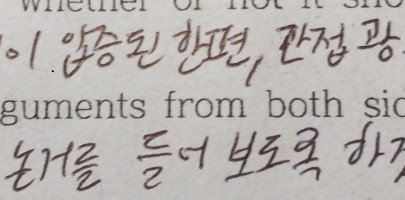 whether or not it sho
이 입증된 한편, 간접 광
guments from both sid
논거를 들어 보도록 하겠